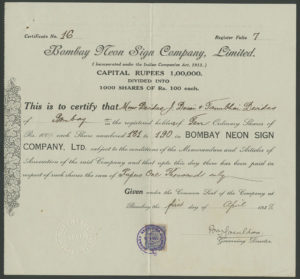 Certificate No. 16 Register Folio 7
Bombay Neon Sign Company, Limited.
(Incorporated under the Indian Companies Act, 1913.)
CAPITAL RUPEES 1,00,000.
DIVIDED INTO
1000 SHARES OF Rs. 100 each.
This is to certify that
of Bombay is the registered holders of Ten Ordinary Shares of
Rs. 100/- each Share numbered 181 to 190 in BOMBAY NEON SIGN
COMPANY, LTD. subject to the conditions of the Memorandum and Articles of
Association of the said Company and that upto this day there has been paid in
respect of such shares the sum of Rupees One Thousand only
Given under the Common Seal of the Company at
Bombay the first day of April
Governing Director